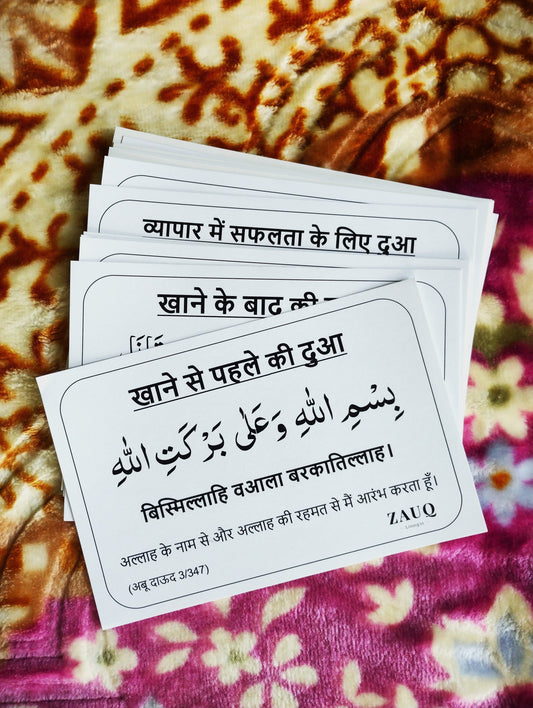 व्यापार में सफलता के लिए दुआ
खाने के बाद की
खाने से पहले की दुआ
بِسْمِ اللهِ وَعَلى بَرْكَتِ اللهِ
बिस्मिल्लाहि वआला बरकातिल्लाह।
अल्लाह के नाम से और अल्लाह की रहमत से मैं आरंभ करता हूँ।
(अबू दाऊद 3/347)
ZAUQ